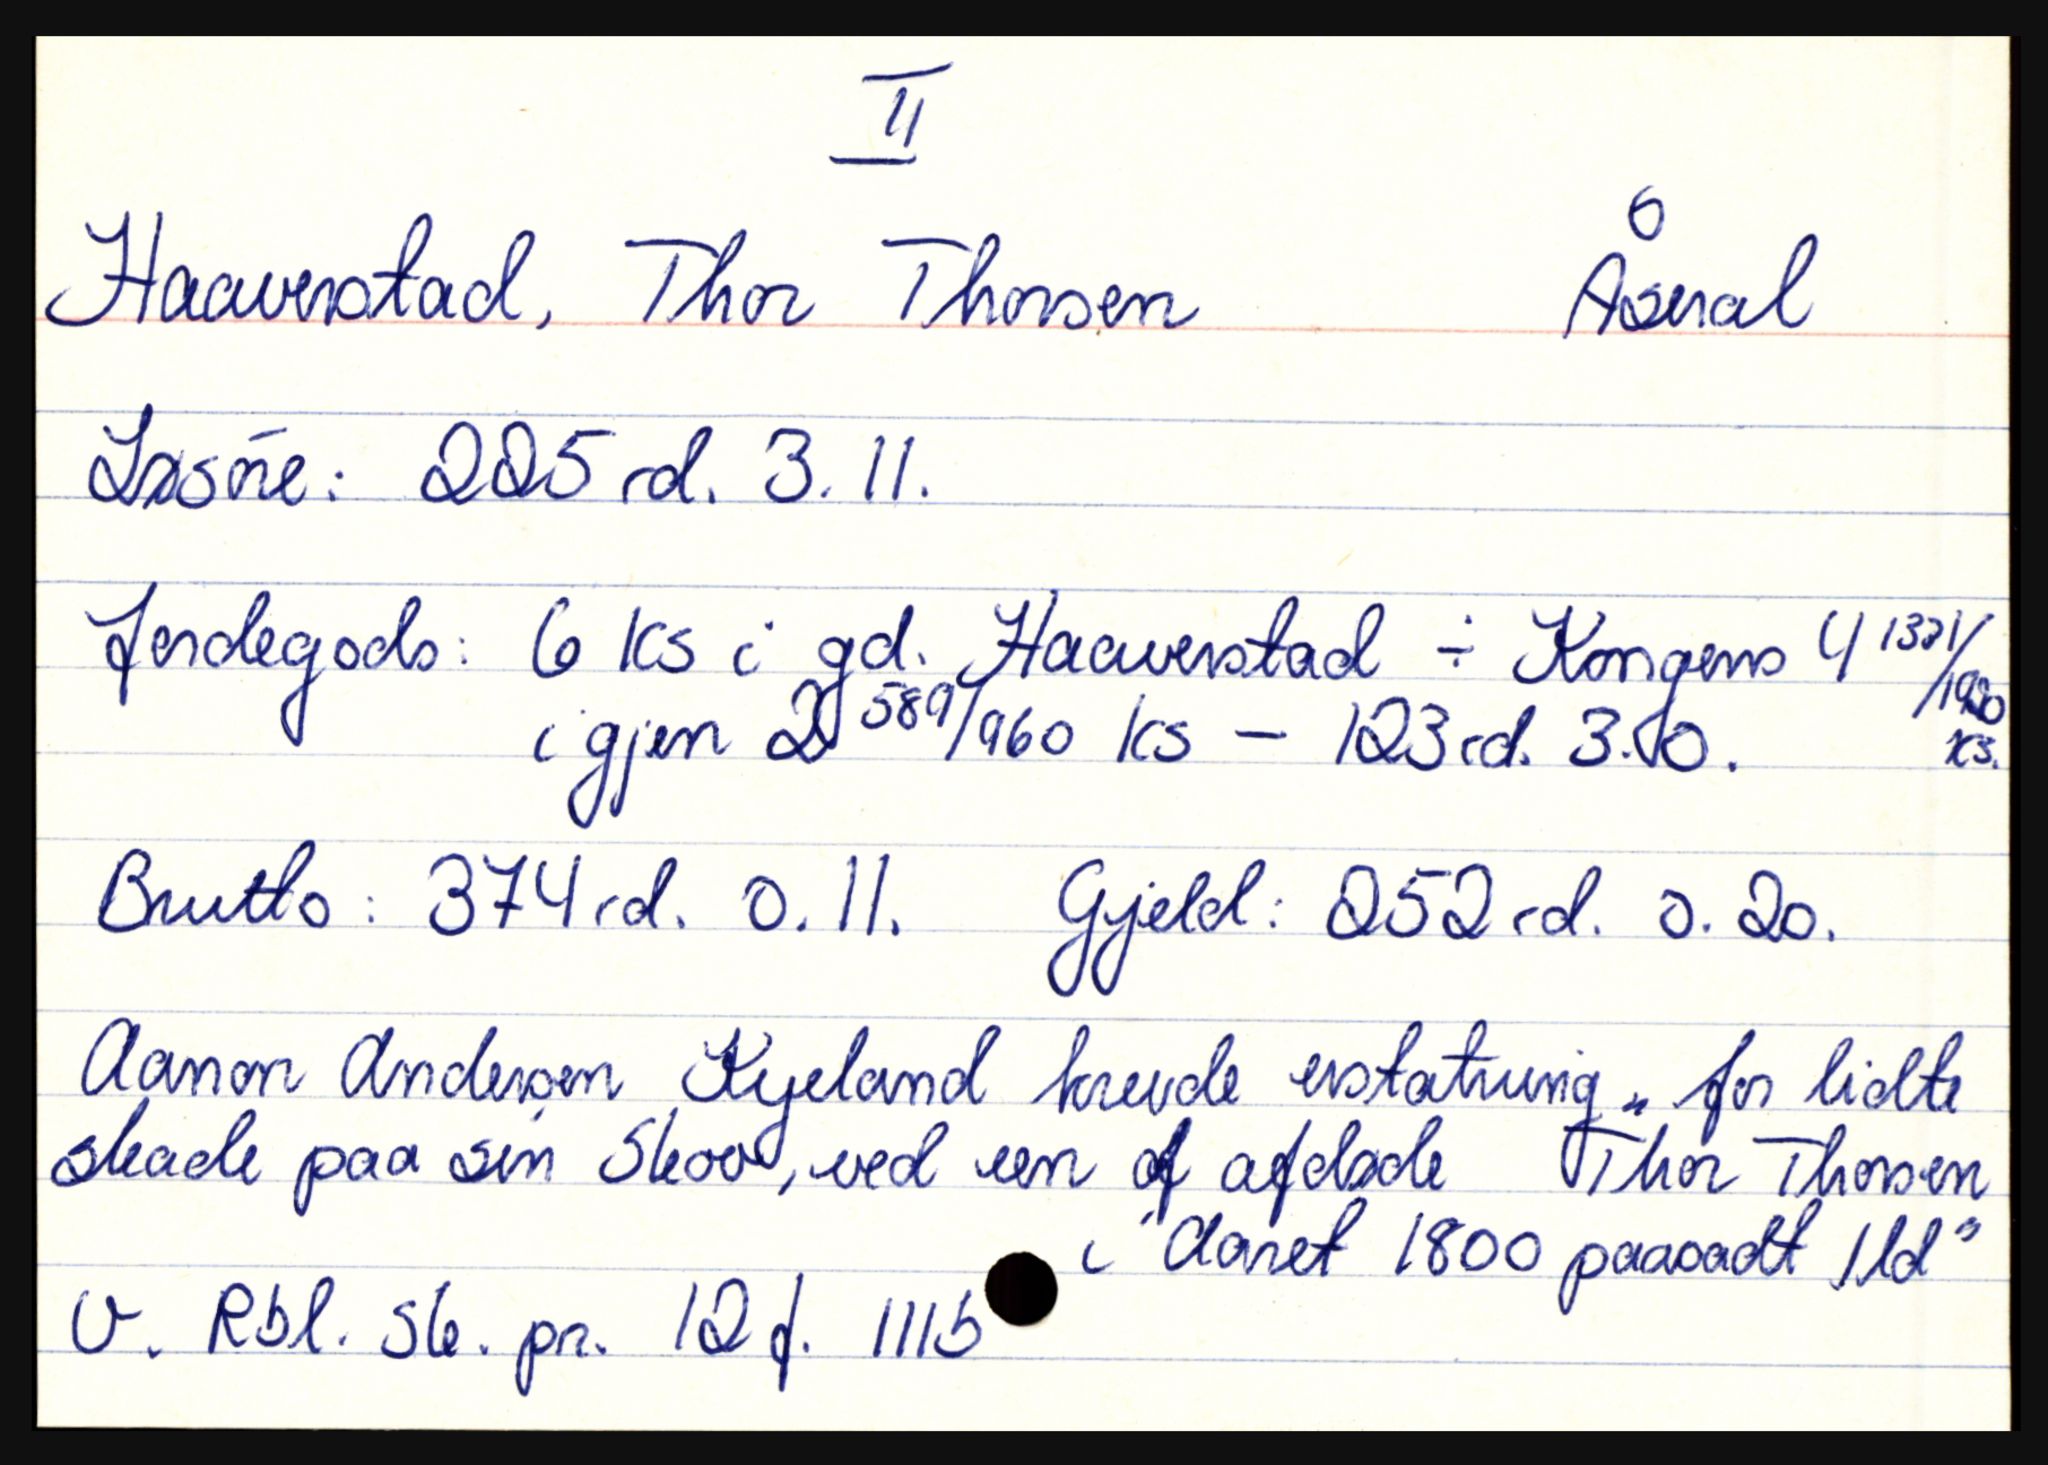 II
Haaverstad, Thor Thorsen Åseral
Løsöre: 225 rd. 3. 11.
Jordegods: 6 Ks i gd. Haaverstad ÷ Kongens 4 1331/1920 Ks.
igjen 2 589/960 Ks — 123 rd. 3. 0.
Brutto: 374 rd. 0. 11. Gjeld: 252 rd. 0. 20.
Aanon Andersen Kyeland krevde erstatning „ for lidte
skade paa sin Skov, ved een af afdøde Thor Thorsen
i "Aaret 1800 paasadt Ild"
V. Rbl. Sk. pr. 12 f. 111b